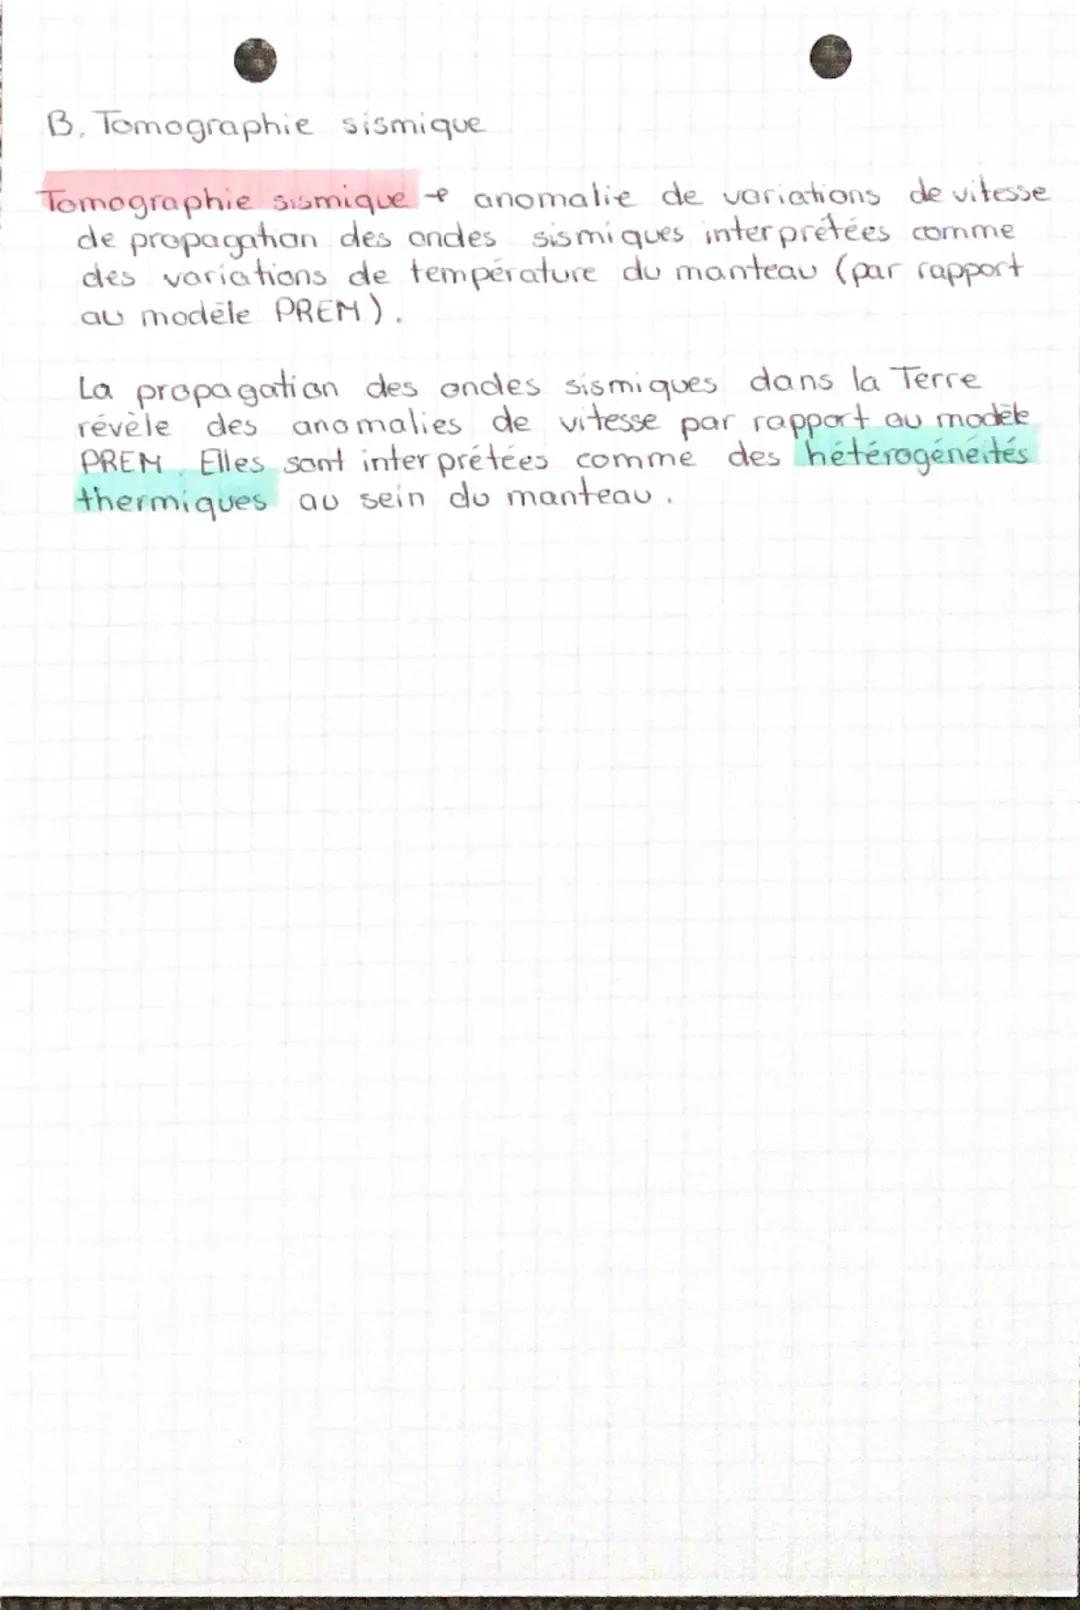 B. Tomographie sismique
Tomographie sismique → anomalie de variations de vitesse
de propagation des ondes sismiques interprétées comme
des variations de température du manteau (par rapport
au modèle PREM).
La propagation des ondes sismiques dans la Terre
révèle des anomalies de vitesse par rapport au modèle
PREM. Elles sont interprétées comme des hétérogénéités
thermiques au sein du manteau.